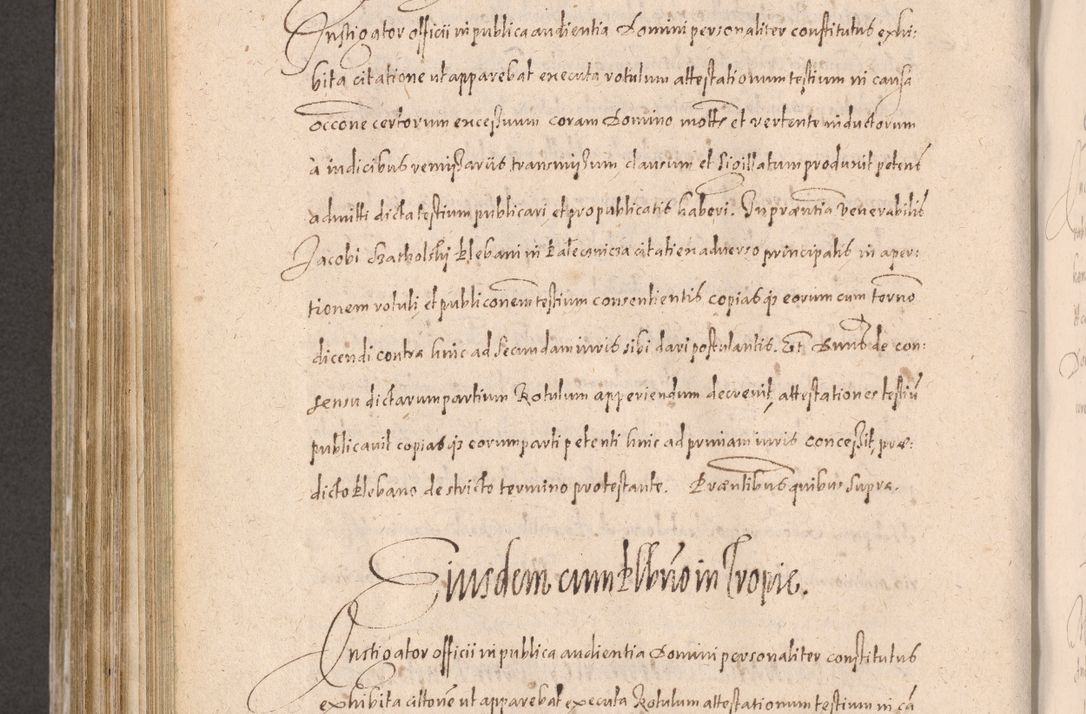 Instigator officii in publica audientia Domini personaliter constitutus exhi:
bita citatione ut apparebat executa rotulum attestationum testium in causa
occone certorum excessuum coram Domino motte et vertente inductorum
à iudicibus remissariis transmissum clausum et sigillatum produxit petens
admitti dicta testium publicari et pro publicatis haberi. In praentia venerabilis
Jacobi klebani in citati ex adverso principalis in aper:
tionem rotuli et publiconem testium consentientis copias q3 eorum cum termo
dicendi contra hinc ad secundam iuris sibi dari postulantis. Et Dnus de con:
sensu dictarum partium Rotulum apperiendum decrevit, attestationes testiū
publicavit copias q3 eorum parti petenti hinc ad primam iuris concessit, prae:
dicto klebano de stricto termino protestante. Praentibus quibus supra.
Eiusdem cum kllbno in Tropie.
Instigator officii in publica audientia Domini personaliter constitutus
exhibita cittone ut apparebat executa Rotulum attestationum testium in cā